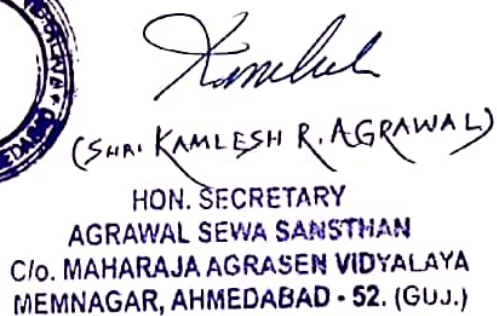 Kamlesh
(SHRI KAMLESH R. AGRAWAL)
HON. SECRETARY
AGRAWAL SEWA SANSTHAN
C/o. MAHARAJA AGRASEN VIDYALAYA
MEMNAGAR, AHMEDABAD - 52. (GUJ.)